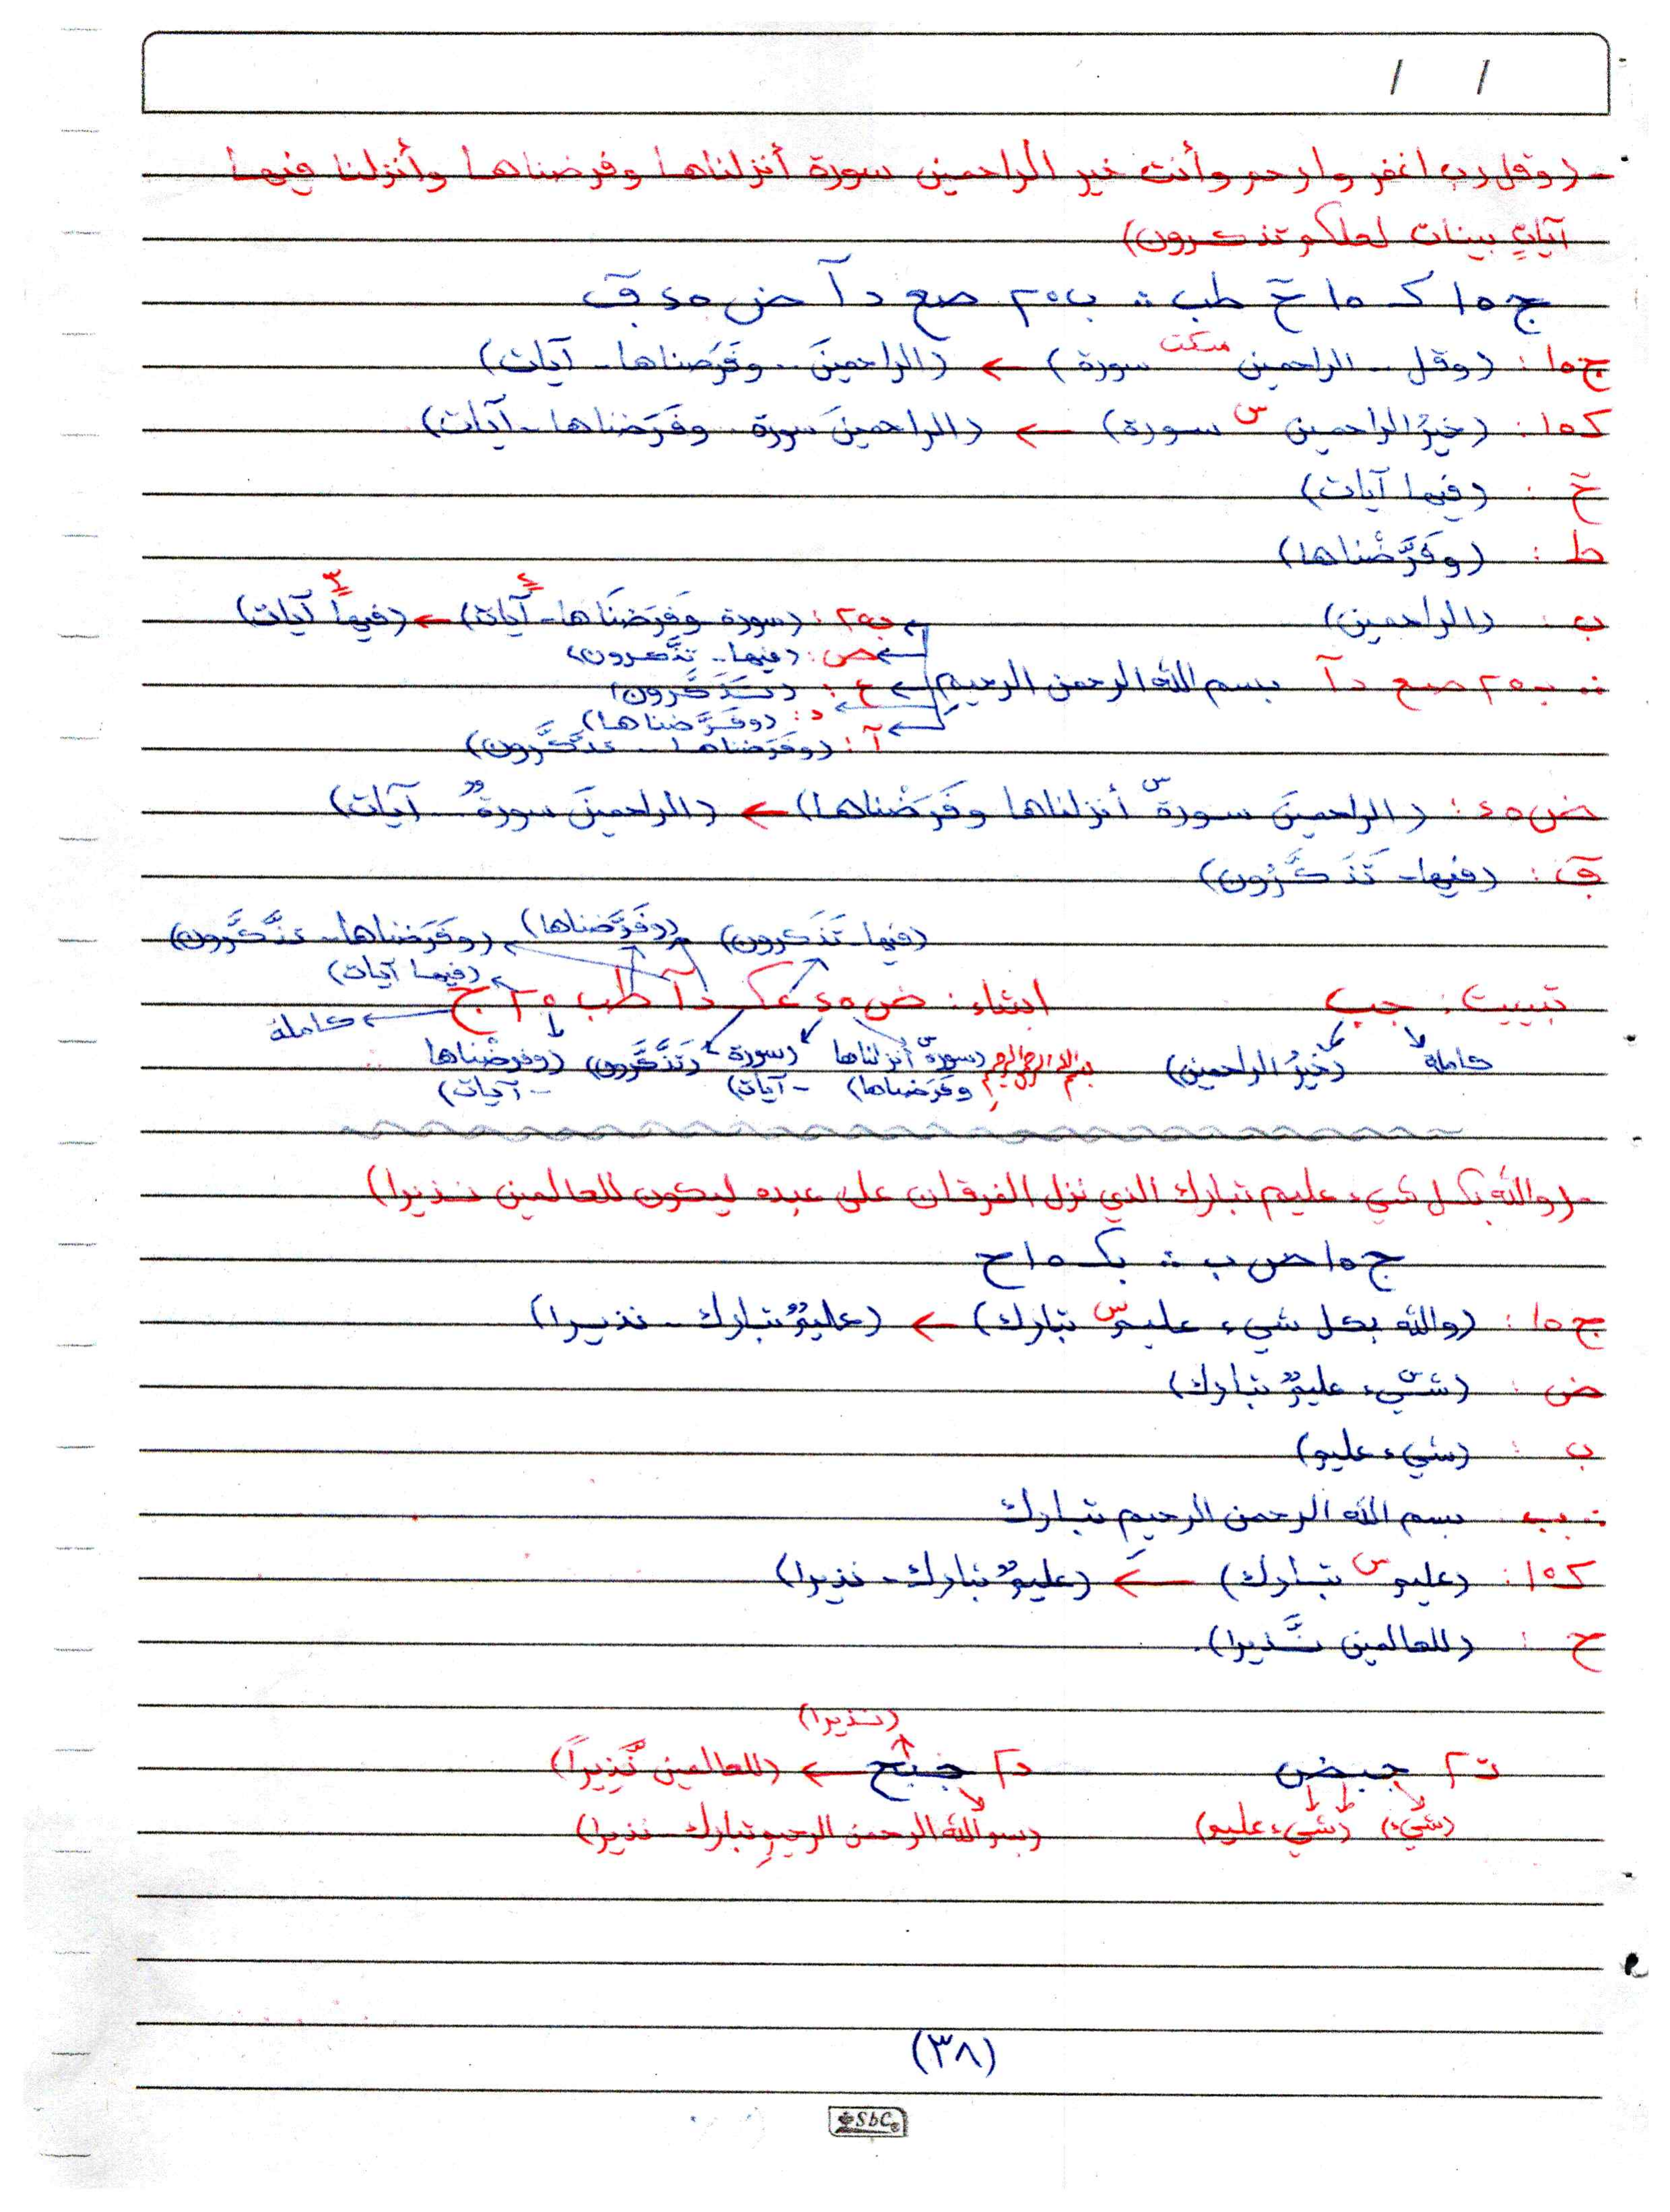 / /
- (وقل رب اغفر وارحم وأنت خير الراحمين سورة أنزلناها وفرضناها وأنزلنا فيها
آياتٍ بينات لعلكم تذكرون)
ج ٥ ا ك ٥ ا حٓ طب ∴ ب ٢٥ صع د آ ض ٤٥ قٓ
ج ٥ ا : (وقل - الراحمين سكت سورة) ← (الراحمينَ - وفَرَضناها - آيات)
ك ٥ ا : (خيرُ الراحمين س سورة) ← (الراحمينَ سورة - وفَرَضناها - آيات)
حٓ : (فيها آيات)
ط : (وفَرَّضْناها)
ب : (الراحمين) ب ٢٥ : (سورة وَفَرَضنَاها - آيات) ٤ ← (فيها آيات) ٣
ص : (فيها - تذَّكرون)
∴ ب ٢٥ صع د آ بسم الله الرحمن الرحيمِ ← ع : (تَذَكَّرون)
د : (وفَرَّضناها)
آ : (وفَرَضناها - تذَّكَّرون)
ض ٤٥ : (الراحمينَ سورةٌ س أنزلناها وفَرَضْناها) ← (الراحمينَ سورةٌ - آيات)
قٓ : (فيها - تَذَكَّرُون)
(فيها - تَذَكرون) (وفَرَّضناها) (وفَرَضناها - تذَّكَّرون)
(فيها آيات)
تبييت : جب ابتداء : ض ٤٥ ع ك د آ طب ٢٥ ج ← كاملة
كاملة (خيرُ الراحمين) بسم الله الرحمن الرحيم (سورةٌ أنزلناها (سورة (تَذَّكَّرون) (وفرضْناها
وفَرَضناها) - آيات) - آيات)
- (والله بكل شيء عليم تبارك الذي نزل الفرقان على عبده ليكون للعالمين نذيرا)
ج ٥ ا ض ب ∴ بك ٥ ا ح
ج ٥ ا : (والله بكل شيء عليم س تبارك) ← (عليمٌ تبارك - نذيرا)
ض : (شيء س عليمٌ تبارك)
ب : (شيء عليم)
∴ بب بسم الله الرحمن الرحيم تبارك
ك ٥ ا : (عليم س تبارك) ← (عليمٌ تبارك - نذيرا)
ح : (للعالمين نَّذيرا).
(نذيرا)
ت ٢ جبض د ٢ جبح ← (للعالمين نَّذِيراً)
(شيء) (شيء عليم) (بسم الله الرحمن الرحيمِ تبارك - نذيرا)
(٣٨)
SbC